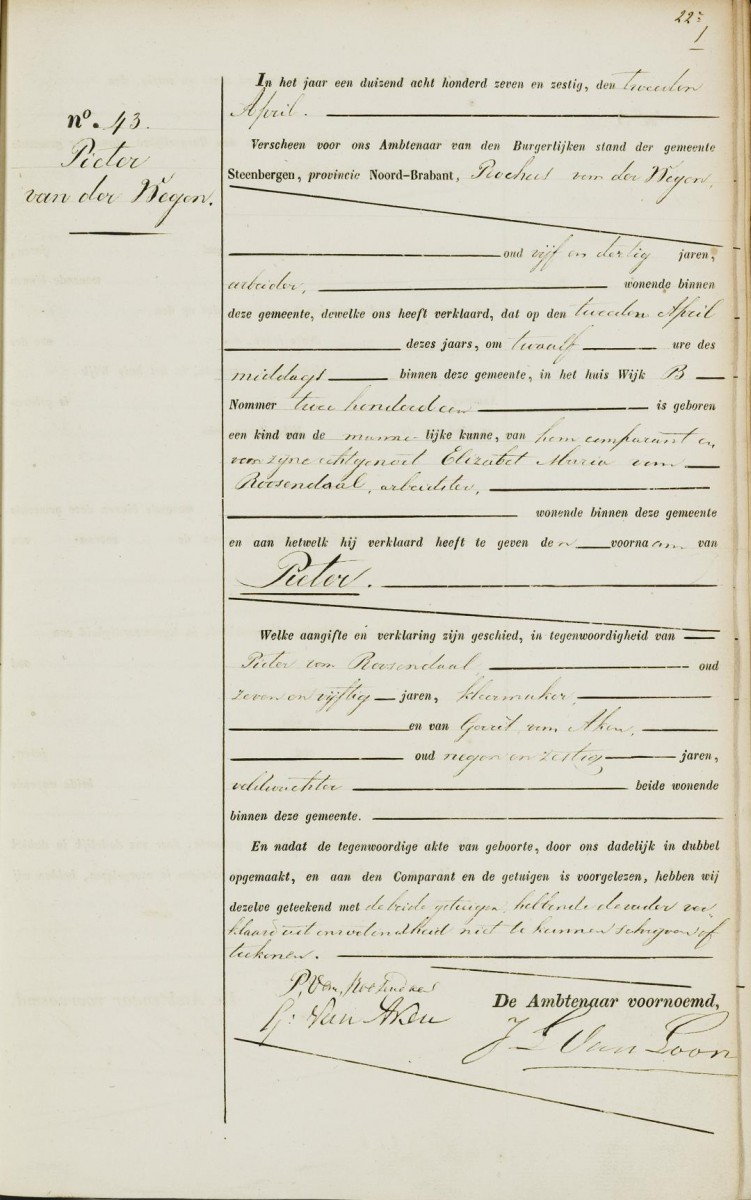 22
1
In het jaar een duizend acht honderd zeven en zestig, den tweeden
April.
nº. 43.
Pieter
van der Wegen.
Verscheen voor ons Ambtenaar van den Burgerlijken stand der gemeente
Steenbergen, provincie Noord-Brabant, Rochus van der Wegen,
oud vijf en dertig jaren,
arbeider, wonende binnen
deze gemeente, dewelke ons heeft verklaard, dat op den tweeden April
dezes jaars, om twaalf ure des
middags binnen deze gemeente, in het huis Wijk B
Nommer twee honderd een is geboren
een kind van de manne lijke kunne, van hem comparant en
van zijne echtgenoot Elizabet Maria van
Roosendaal, arbeidster,
wonende binnen deze gemeente
en aan hetwelk hij verklaard heeft te geven den voornaam van
Pieter.
Welke aangifte en verklaring zijn geschied, in tegenwoordigheid van
Pieter van Roosendaal oud
zeven en vijftig jaren, kleermaker,
en van Gerrit van Aken,
oud negen en zestig jaren,
veldwachter beide wonende
binnen deze gemeente.
En nadat de tegenwoordige akte van geboorte, door ons dadelijk in dubbel
opgemaakt, en aan den Comparant en de getuigen is voorgelezen, hebben wij
dezelve geteekend met de beide getuigen, hebbende de vader ver-
klaard uit onvolendheid niet te kunnen schrijven of
teekenen.
P. van Roosendaal
G. van Aken
De Ambtenaar voornoemd,
J L Van Loon